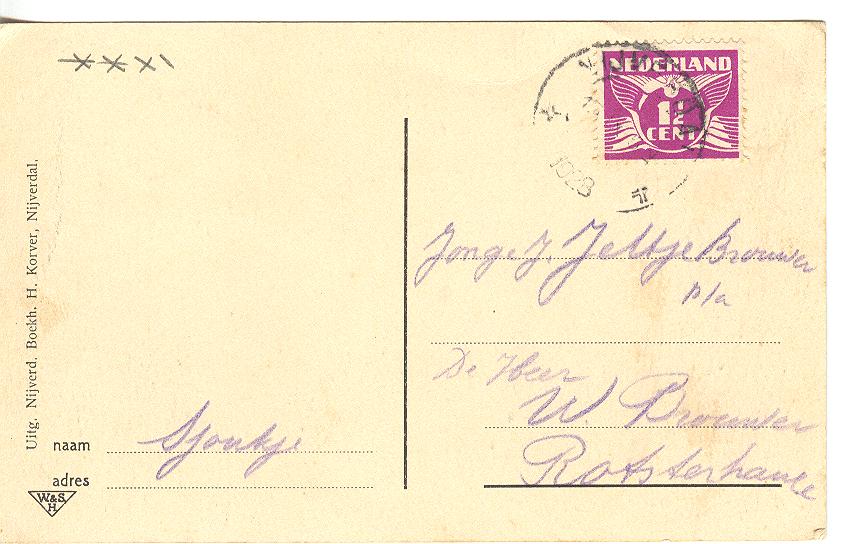 NEDERLAND
1½
CENT
1928
Uitg. Nijverd. Boekh. H. Korver, Nijverdal.
Jongej. Jeltje Brouwer
p/a
De Heer
W. Brouwer
Rotsterhaule
naam Sjoukje
adres
W&S
H